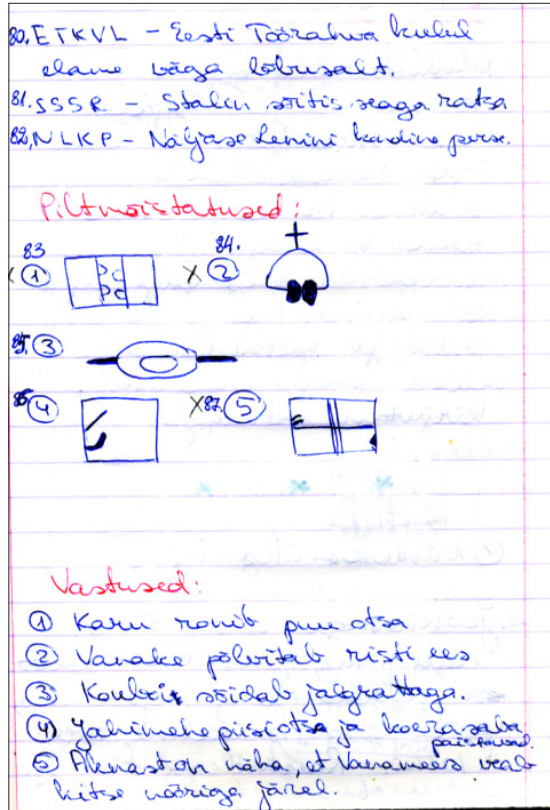 80. ETKVL – Eesti Töörahva kulul
elame väga lõbusalt.
81. SSSR – Stalin sõitis seaga ratsa
82. NLKP – Näljase Lenini kondine perse.
Piltmõistatused:
83 84.
X ① X ②
85. ③
86 ④ X 87. ⑤
Vastused:
① Karu ronib puu otsa
② Vanake põlvitab risti ees
③ sõidab jalgrattaga.
④ Jahimehe püssiots ja koerasaba
paistavad.
⑤ Aknast on näha, et Vanamees veab
kitse nööriga järel.